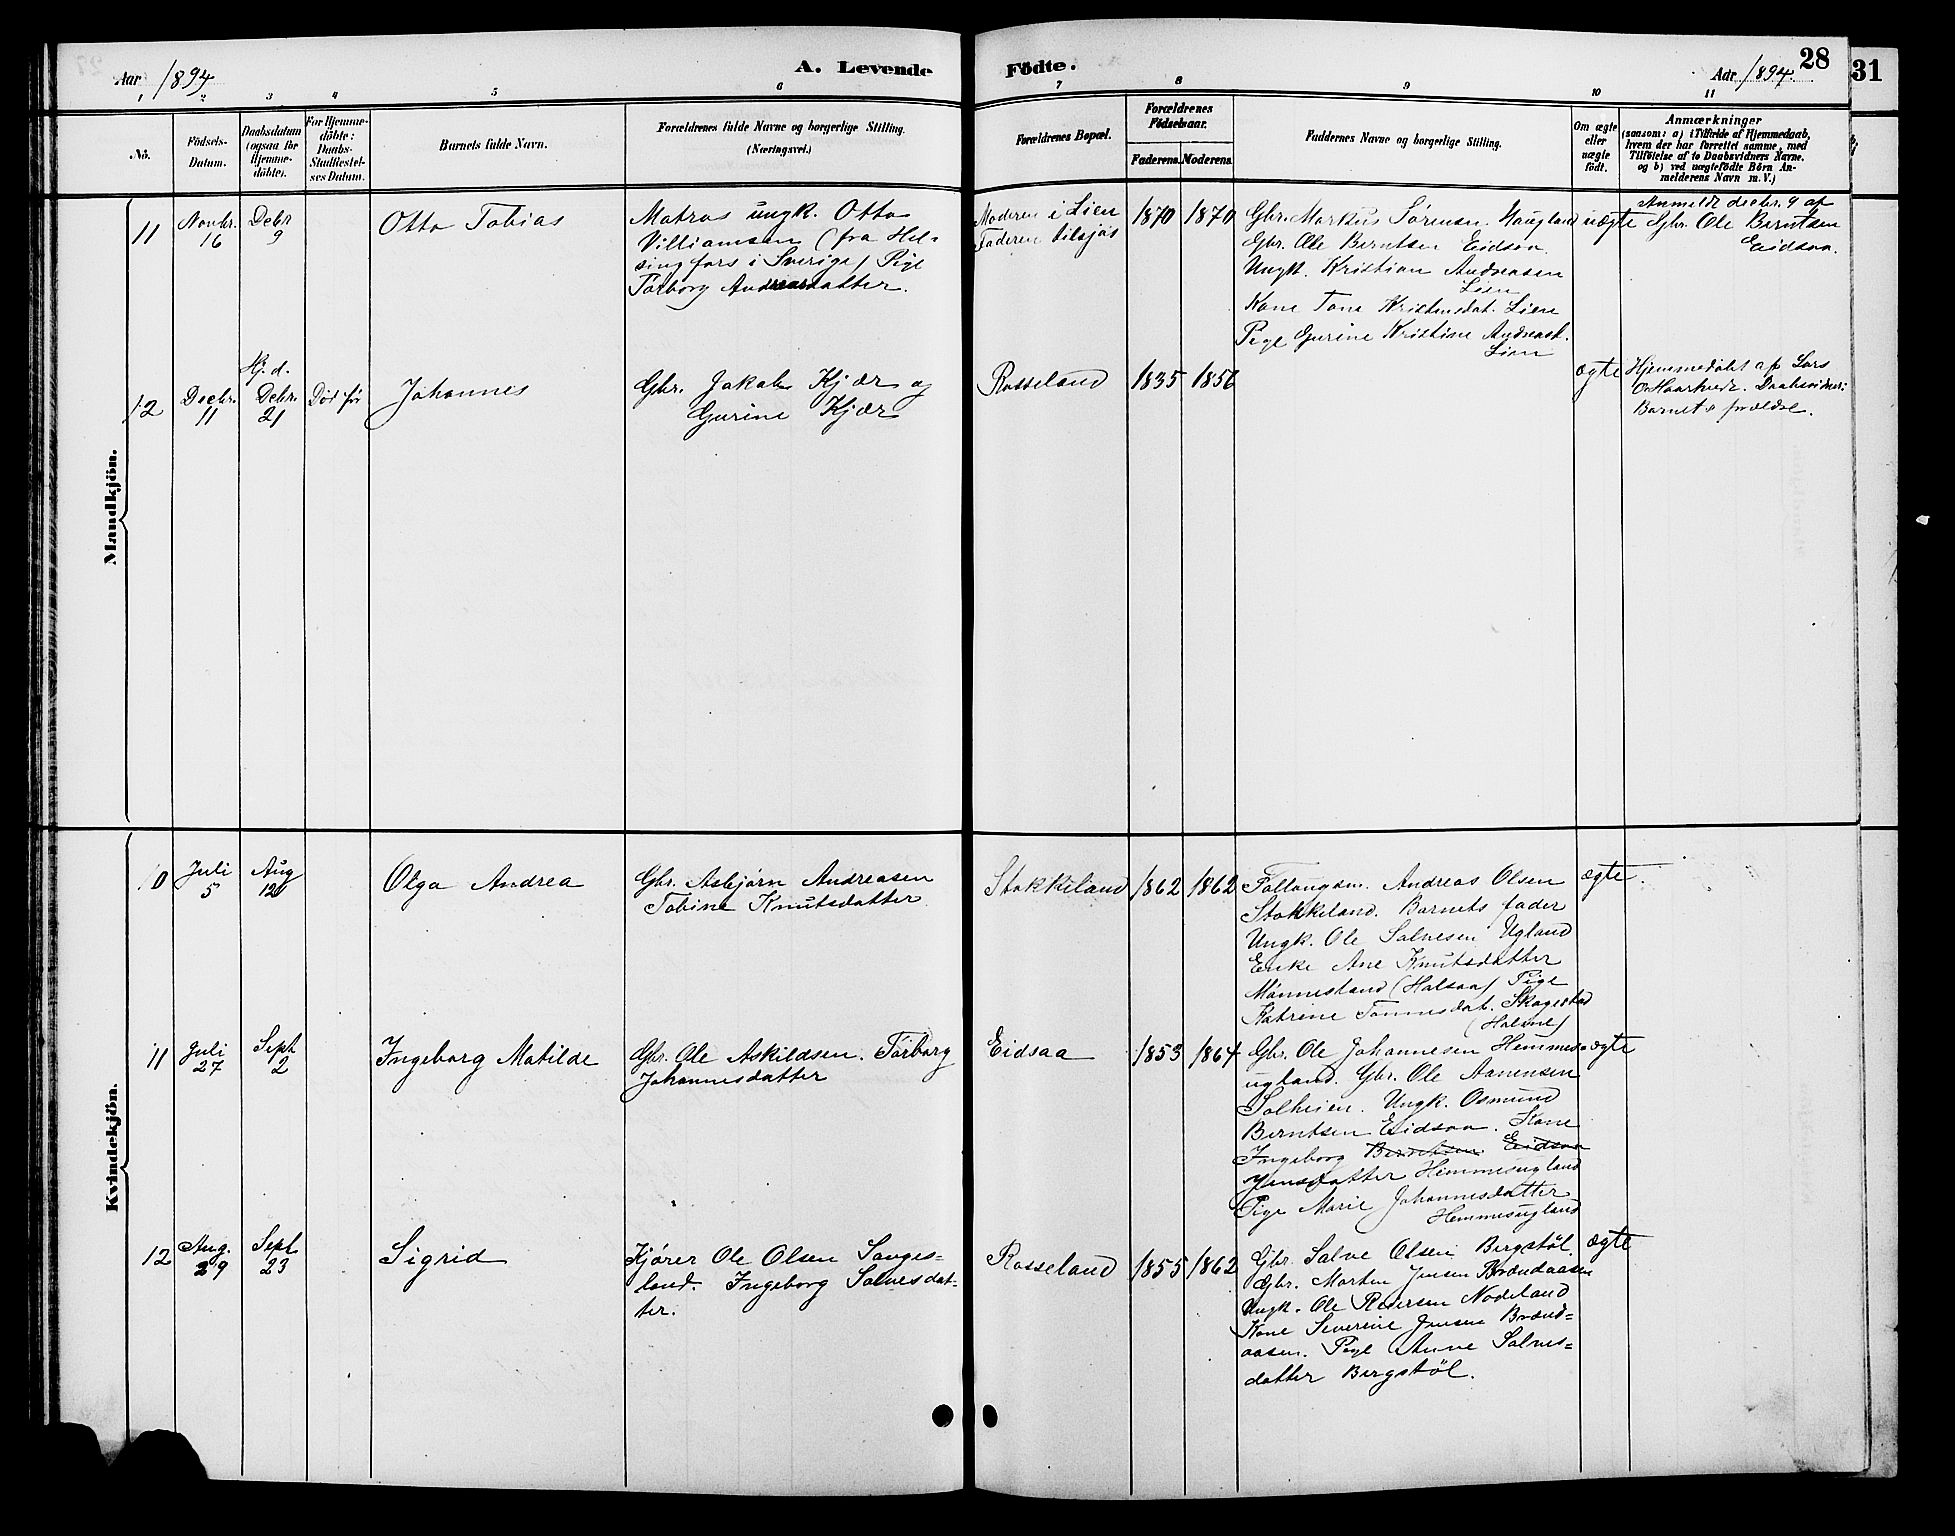 Aar 1894
A. Levende
Fødte.
Aar 1894.
28
31
1 2 3 4 5 6 7 8 9 10 11
No.
Födsels-
Datum.
Daabsdatum
(ogsaa for
Hjemme-
döbte).
For Hjemme-
döbte:
Daabs-
Stadfæstel-
ses Datum.
Barnets fulde Navn.
Forældrenes fulde Navne og borgerlige Stilling.
(Næringsvei.)
Forældrenes Bopæl.
Forældrenes
Födselsaar.
Faderens.
Moderens.
Faddernes Navne og borgerlige Stilling.
Om ægte
eller
uægte
födt.
Anmærkninger
(saasom: a) i Tilfælde af Hjemmedaab,
hvem der har forrettet samme, med
Tilföielse af to Daabsvidners Navne.
og b) ved uægtefödte Börn An-
melderens Navn m. V.)
Mandkjön.
11
Novbr.
16
Debr
9
Otto Tobias
Matros ungk. Otto
Villiamsen (fra Hel-
singfors i Sverige) Pige
Torborg Andreasdatter.
Moderen i Lien
Faderen tilsjøs
1870
1870
Gbr. Markus Sørensen Haugland
Gbr. Ole Berntsen Eidsaa
Ungk. Kristian Andreasen
Lien
Kone Tone Kristensdat. Lien
Pige Gurine Kristine Andreasd.
Lien
uægte
Anmeldt decbr. 9 af
Gbr. Ole Berntsen
Eidsaa.
12
Decbr.
11
Hj. d.
Debr.
21
Død før
Johannes
Gbr. Jakob Kjær og
Gurine Kjær
Rosseland
1835
1856
ægte
Hjemmedøbt af Lars
O. Haarkedr. Daabsvidner:
Barnets forældre.
Kvindekjön.
10
Juli
5
Aug
12
Olga Andrea
Gbr. Asbjørn Andreasen
Tobine Knutsdatter
Stokkeland
1862
1862
Faltangsm. Andreas Olsen
Stokkeland. Barnets fader
Ungk. Ole Salvesen Ugland
Enke Ane Knutsdatter
Mønnesland (Halsaa) Pige
Katrine Tønnesdat. Skagestad
(Holme)
ægte.
11
Juli
27
Sept
2
Ingeborg Matilde
Gbr. Ole Askildsen. Torborg
Johannesdatter
Eidsaa
1853
1864
Gbr. Ole Johannesen Hemmes-
ugland. Gbr. Ole Aanensen
Solheien. Ungk. Osmund
Berntsen Eidsaa. Kone
Ingeborg Berntsen Eidsaa
Jensdatter Hemmesugland
Pige Marie Johannesdatter
Hemmesugland
ægte
12
Aug.
29
Sept
23
Sigrid
Kjører Ole Olsen Sanges-
land. Ingeborg Salvesdat-
ter.
Rosseland
1855
1862
Gbr. Salve Olsen Bergstøl.
Gbr. Morten Jensen Brændaasen
Ungk. Ole Pedersen Nodeland
Kone Severine Jensen Brænd-
aasen. Pige Anne Salves-
datter Bergstøl.
ægte